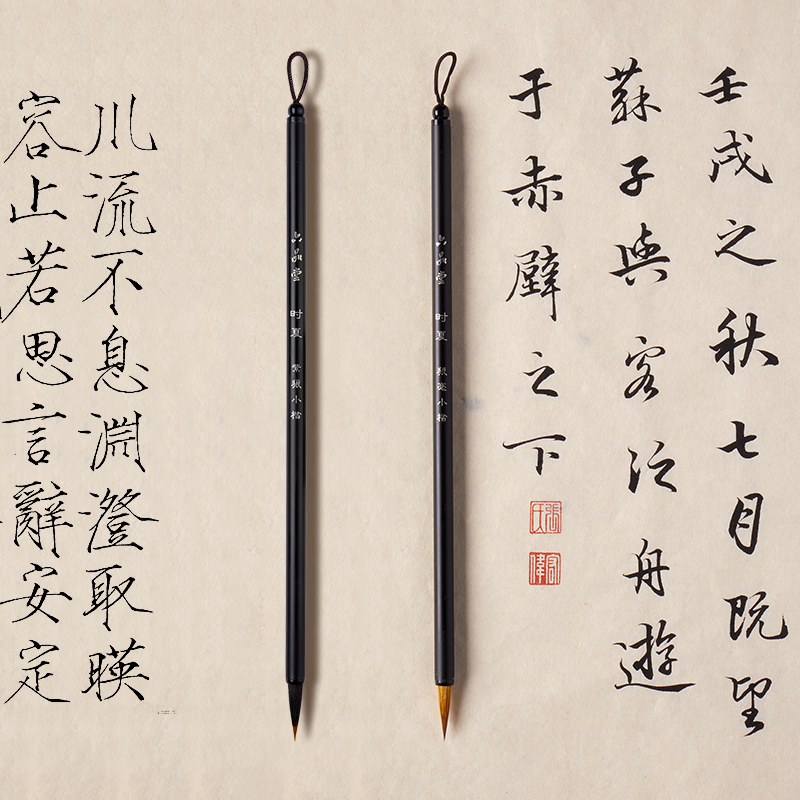 壬戌之秋七月既望
蘇子與客泛舟遊
于赤壁之下
張氏
六晶堂 时夏 狼毫小楷
六晶堂 时夏 紫狼小楷
川流不息淵澄取暎
容止若思言辭安定